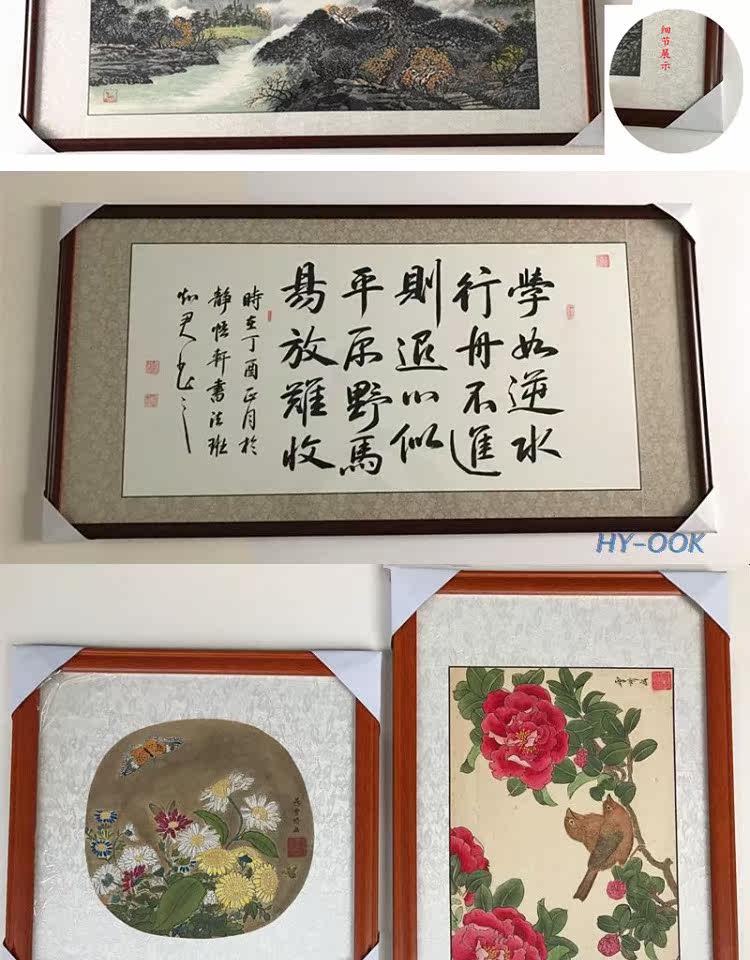 细节展示
學如逆水
行舟不進
則退心似
平原野馬
易放難收
時在丁酉正月於
靜悟軒書法班
HY-OOK